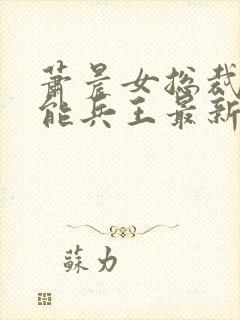 萧晨女总裁
能兵王最新
苏力